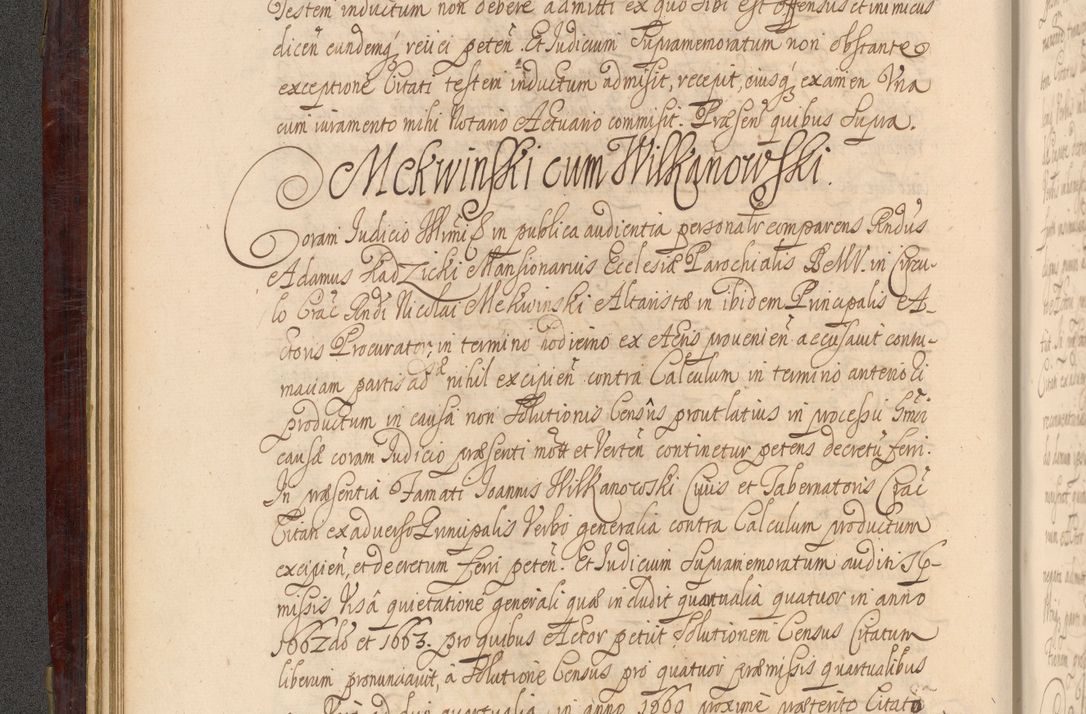 Testem inductum non debere admitti ex quo sibi est offensus et inimicus
dicen̄ eundemq́ reiici peten̄. Et Iudicium Supramemoratum non obstante
exceptione Citati testem inductum admisit, recepit, eiusq́ examen Vna
cum iuramento mihi Notario Actuario commisit. Præsen̄ quibus Supra.
Mekwinski cum Wilkanowski.
Coram Iudicio in publica audientia personalr comparens Rndus
Adamus Radzicki Mansionarius Ecclesiæ Parochialis BMV. in Circu-
lo Crac Rndi Nicolai Mekwinski Altaristæ in ibidem Principalis A-
ctoris Procurator, in termino hodierno ex Actis provenien̄ accusavit contu-
maciam partis adæ nihil excipien̄ contra Calculum in termino anteriori
productum in causa non Solutionis Censûs prout latius in processu
causæ coram Iudicio præsenti mott et Verten̄ continetur petens decretū ferri.
In præsentia Famati Ioannis Wilkanowski Civis et Tabernatoris Crac
Citati ex adverso Principalis Verbo generalia contra Calculum productum
excipien̄, et decretum ferri peten̄. Et Iudicium Supramemoratum auditis Ip-
missis Visâ quietatione generali quæ includit quartualia quatuor in anno
1662do et 1663. pro quibus Actor petiit Solutionem Census Citatum
liberum pronunciavit, â Solutione Census pro quatuor præmissis quartualibus
ad duo quartualia in anno 1660 proxime præterito Citato